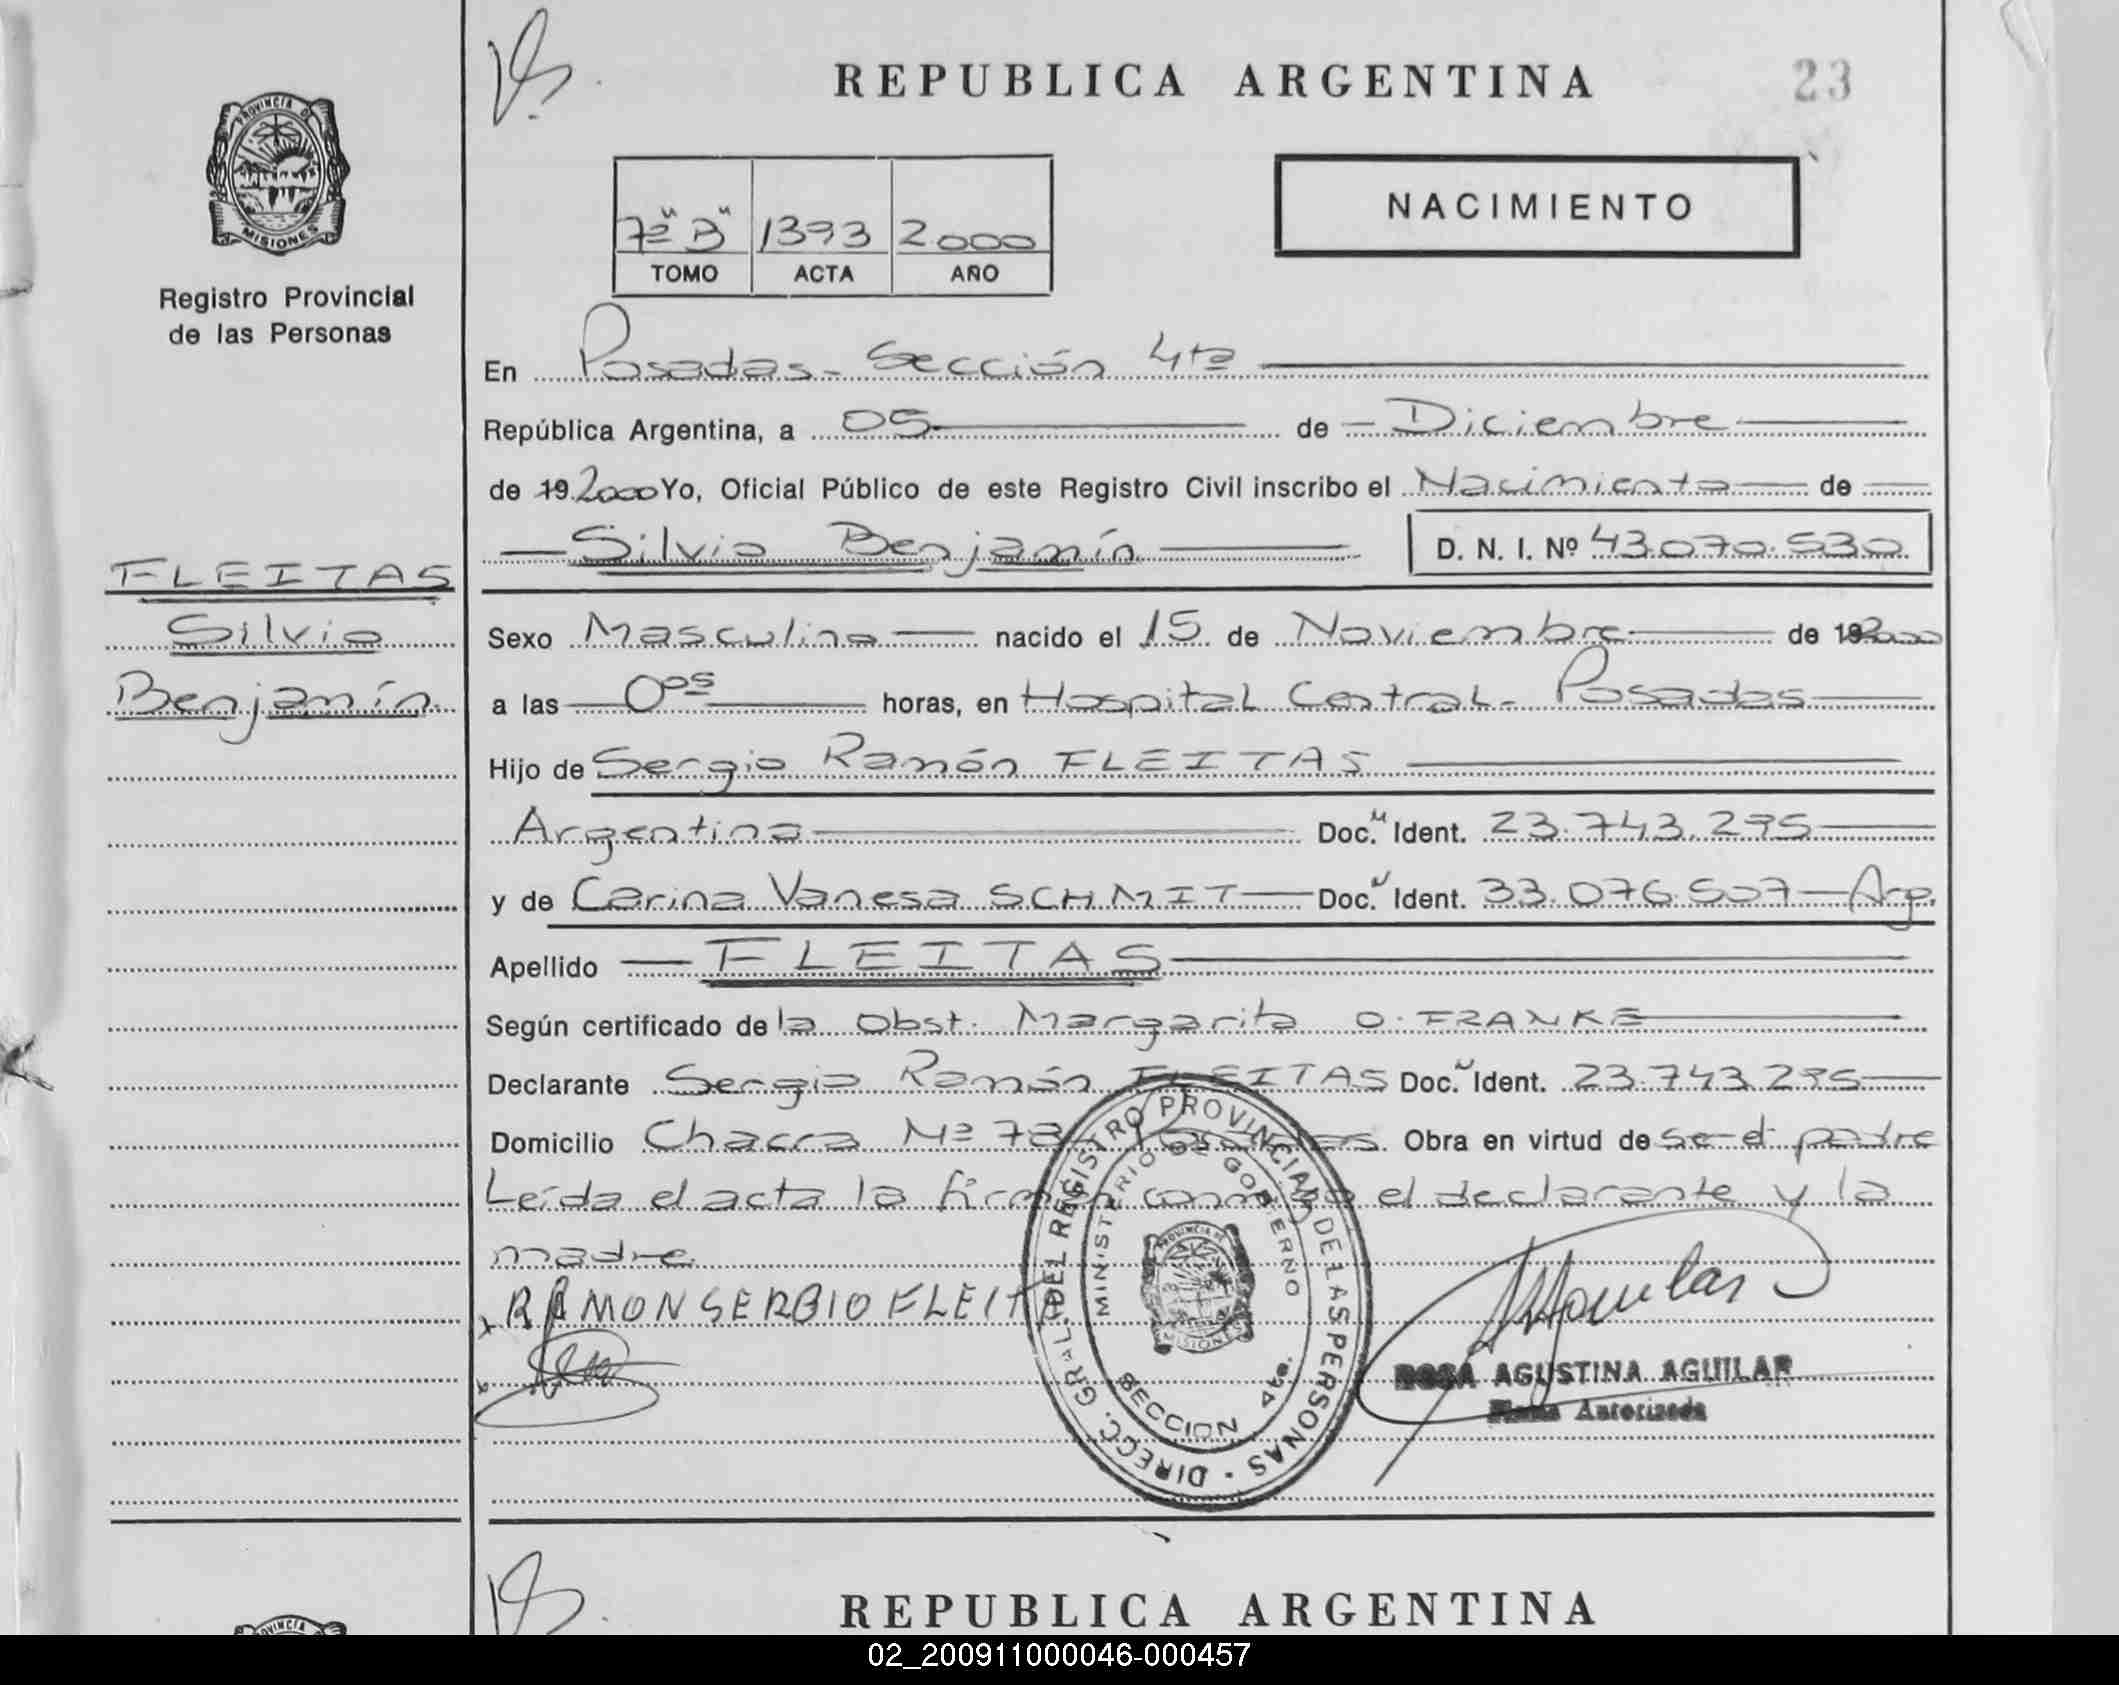 REPUBLICA ARGENTINA
23
PROVINCIA DE
MISIONES
Registro Provincial
de las Personas
7º "B" 1393 2000
TOMO ACTA AÑO
NACIMIENTO
En Posadas - Sección 4ta
República Argentina, a 05 de Diciembre
de 19 2000 Yo, Oficial Público de este Registro Civil inscribo el Nacimiento de
Silvio Benjamín D. N. I. Nº 43.070.530
FLEITAS
Silvio
Benjamín
Sexo Masculino nacido el 15 de Noviembre de 19 2000
a las 0 05 horas, en Hospital Central - Posadas
Hijo de Sergio Ramón FLEITAS
Argentino Doc. Ident. 23.743.295
y de Carina Vanesa SCHMIT Doc. Ident. 33.076.507 - Arg.
Apellido FLEITAS
Según certificado de la Obst. Margarita O. FRANKE
Declarante Sergio Ramón FLEITAS Doc. Ident. 23.743.295
Domicilio Chacra Nº 78 - Posadas. Obra en virtud de ser el padre
Leída el acta la firman conmigo el declarante y la
madre.
RAMON SERBIO FLEITA
DIRECC. GRAL. DEL REGISTRO PROVINCIAL DE LAS PERSONAS
MINISTERIO DE GOBIERNO
SECCION 4ta.
PROVINCIA DE
MISIONES
RAguilar
ROSA AGUSTINA AGUILAR
Firma Autorizada
REPUBLICA ARGENTINA
02_200911000046-000457